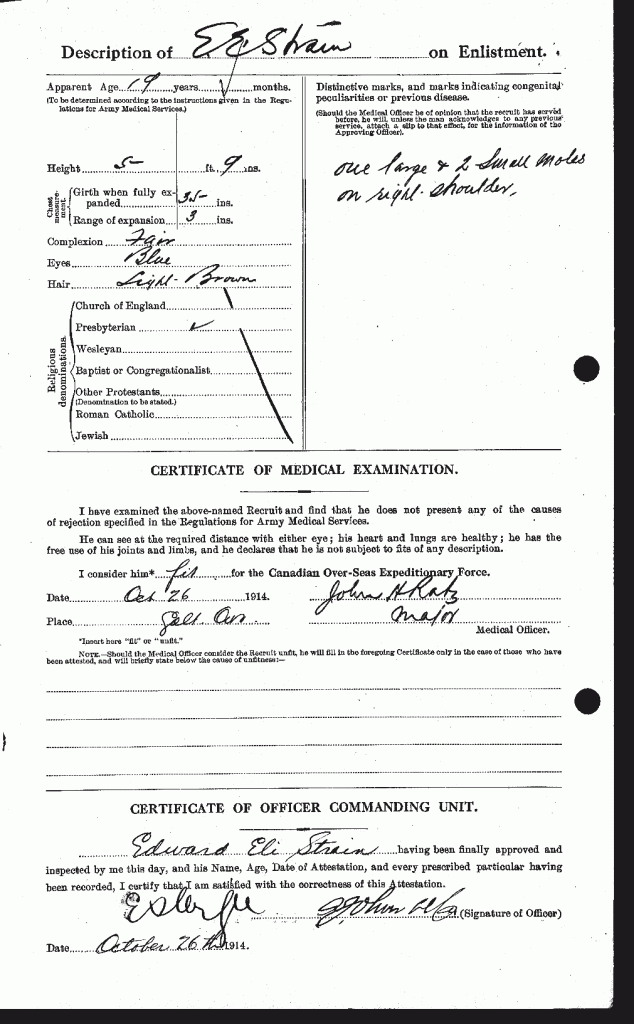 Description of E E Strain on Enlistment.
Apparent Age 19 years months.
(To be determined according to the instructions given in the Regulations for Army Medical Services.)
Height 5 ft. 9 ins.
Chest measurement.
Girth when fully expanded 35 ins.
Range of expansion 3 ins.
Complexion Fair
Eyes Blue
Hair Light-Brown
Religious denominations.
Church of England
Presbyterian ✓
Wesleyan
Baptist or Congregationalist
Other Protestants
(Denomination to be stated.)
Roman Catholic
Jewish
Distinctive marks, and marks indicating congenital
peculiarities or previous disease.
(Should the Medical Officer be of opinion that the recruit has served
before, he will, unless the man acknowledges to any previous
service, attach a slip to that effect, for the information of the
Approving Officer).
one large & 2 small moles
on right shoulder.
CERTIFICATE OF MEDICAL EXAMINATION.
I have examined the above-named Recruit and find that he does not present any of the causes
of rejection specified in the Regulations for Army Medical Services.
He can see at the required distance with either eye; his heart and lungs are healthy; he has the
free use of his joints and limbs, and he declares that he is not subject to fits of any description.
I consider him* fit for the Canadian Over-Seas Expeditionary Force.
Date Oct 26 1914. John H Ratz
Place Galt Ont. Major
Medical Officer.
*Insert here "fit" or "unfit."
NOTE.—Should the Medical Officer consider the Recruit unfit, he will fill in the foregoing Certificate only in the case of those who have
been attested, and will briefly state below the cause of unfitness:—
CERTIFICATE OF OFFICER COMMANDING UNIT.
Edward Eli Strain having been finally approved and
inspected by me this day, and his Name, Age, Date of Attestation, and every prescribed particular having
been recorded, I certify that I am satisfied with the correctness of this Attestation.
(Signature of Officer)
Date October 26th 1914.